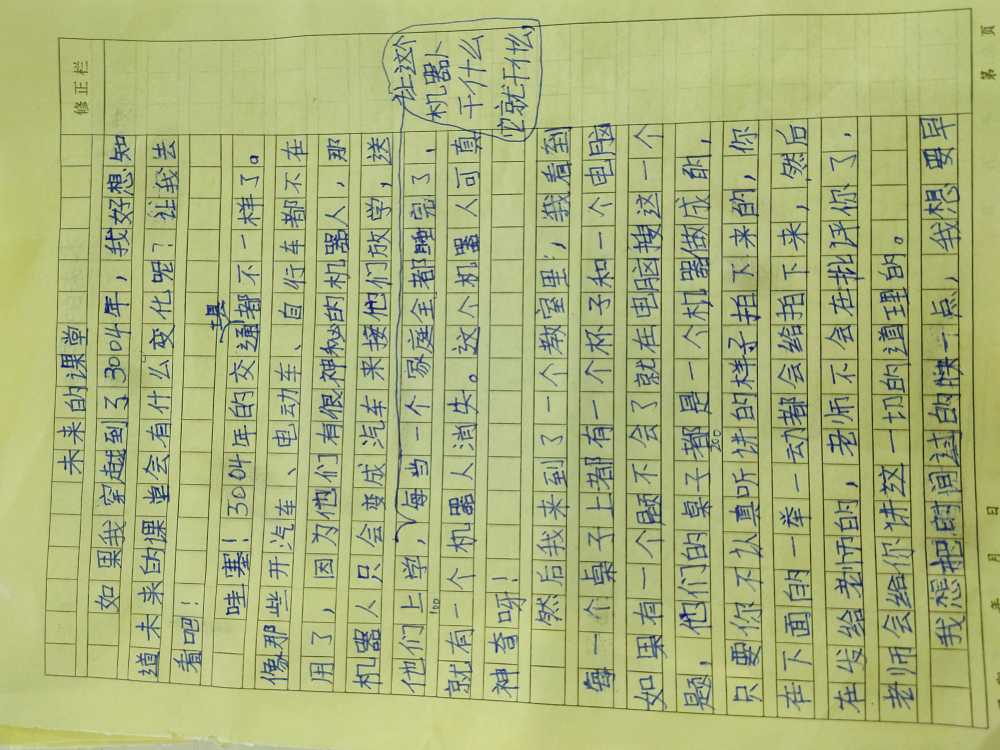 修正栏
未来的课堂
如果我穿越到了3004年，我好想知
道未来的课堂会有什么变化呢？让我去
看吧！
哇塞！3004年的交通都不一样了。
像那些开汽车、电动车、自行车都不在
用了，因为他们有很神秘的机器人，那
机器人只会变成汽车来接他们放学，送
他们上学，每当一个家庭全都睡完了、
让这个
机器人
干什么
它就干什么
就有一个机器人消失。这个机器人可真
神奇呀！
然后我来到了一个教室里，我看到
每一个桌子上都有一个杯子和一个电脑
如果有一个题不会了就在电脑搜这一个
题，他们的桌子都是一个机器做成的，
只要你不认真听讲的样子拍下来的，你
在下面的一举一动都会给拍下来，然后
在发给老师的，老师不会在批评你了，
老师会给你讲这一切的道理的。
我想把时间过的快一点，我想要早
第 页
年 月 日